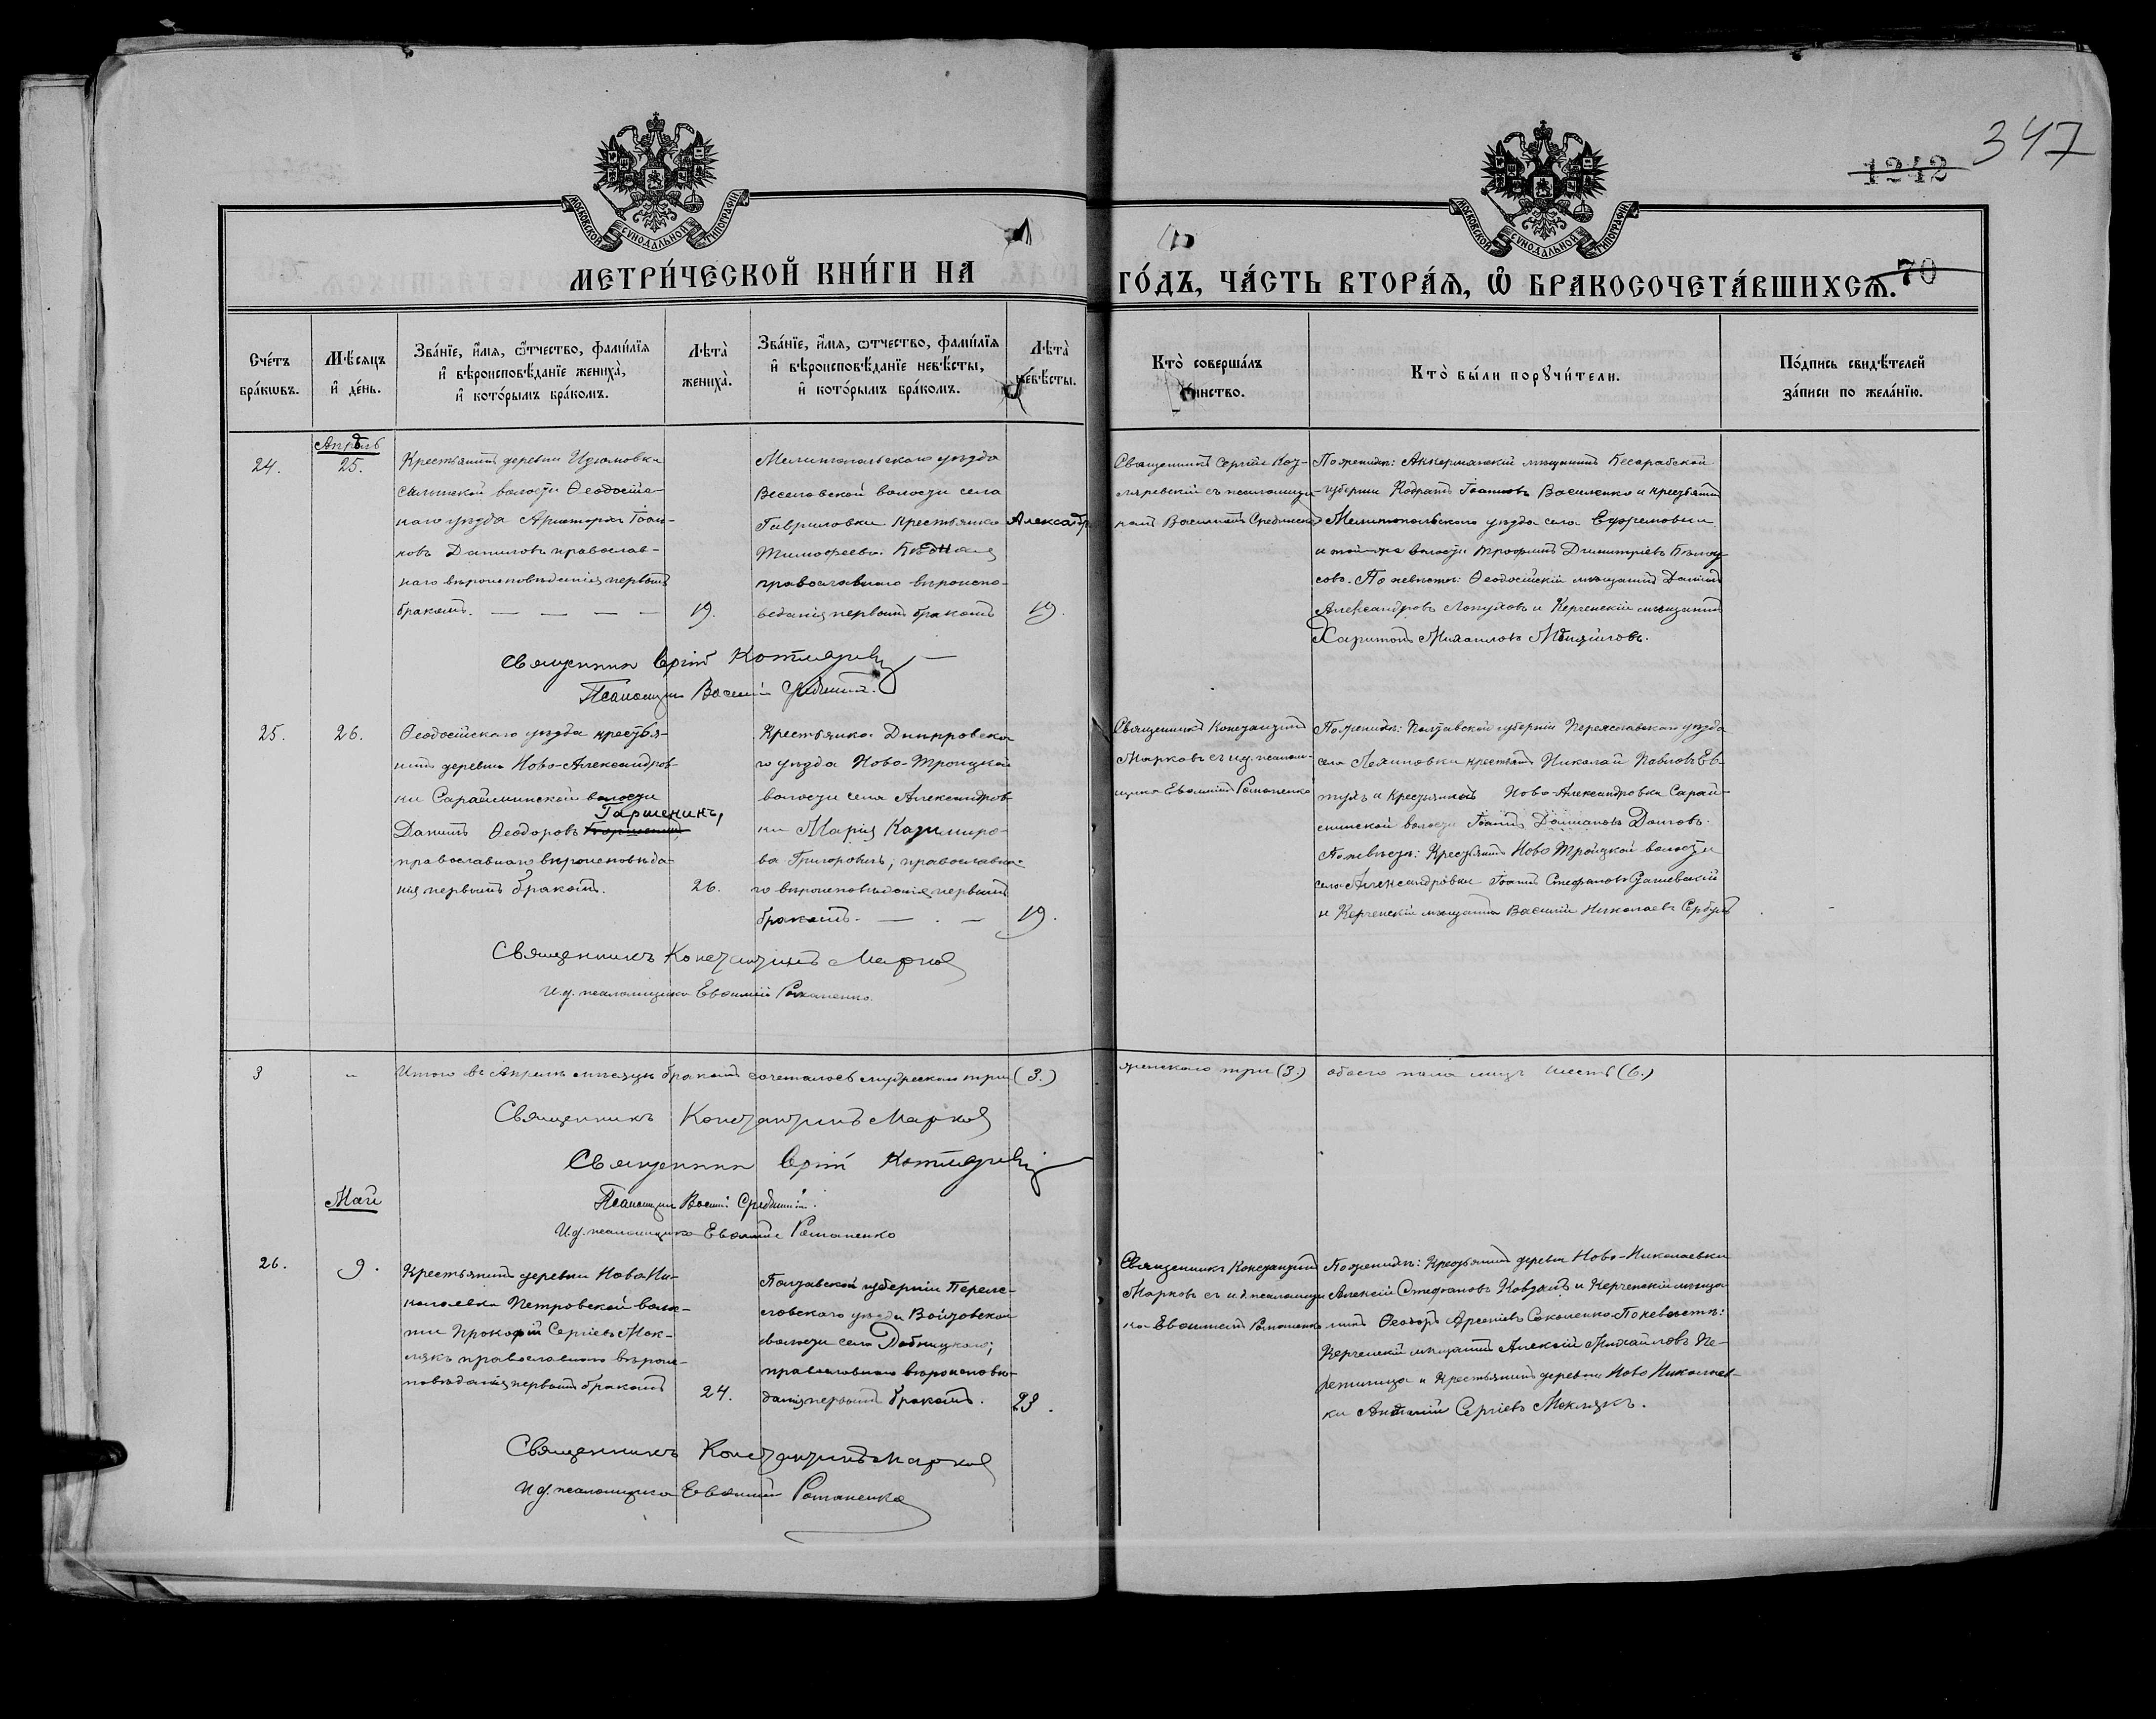 347
1242
МОСКОВСКОЙ СУНОДАЛЬНОЙ ТИПОГРАФІИ
МОСКОВСКОЙ СУНОДАЛЬНОЙ ТИПОГРАФІИ
МЕТРИ́ЧЕСКОЙ КНИ́ГИ НА ГО́ДЪ, ЧА́СТЬ ВТОРА́Я, Ѡ҆ БРАКОСОЧЕТА́ВШИХСѦ.
70
Сче́тъ бра́кѡвъ.
Мѣ́сяцъ и҆ де́нь.
Зва́нїе, и҆́мя, ѻ҆́тчество, фами́лїя и҆ вѣроисповѣ́данїе жениха̀, и҆ кото́рымъ бра́комъ.
Лѣта̀ жениха̀.
Зва́нїе, и҆́мя, ѻ҆́тчество, фами́лїя и҆ вѣроисповѣ́данїе невѣ́сты, и҆ кото́рымъ бра́комъ.
Лѣта̀ невѣ́сты.
Кто̀ соверша́лъ та́инство.
Кто̀ бы́ли порꙋчи́тели.
По́дпись свидѣ́телей за́писи по жела́нїю.
Апрѣль
24.
25.
Крестьянинъ деревни Изюмовки
волости Ѳеодосій-
скаго уѣзда Іоан-
новъ Даниловъ православ-
наго вѣроисповѣданія первымъ
бракомъ. — — — —
19.
Мелитопольскаго уѣзда
Веселовской волости села
Гавриловки крестьянка Александра
Тимоѳеева Бѣдная
православнаго вѣроиспо-
вѣданія первымъ бракомъ
19.
Священникъ Сергій Кот-
ляревскій съ псаломщи-
комъ Василіемъ Срединскимъ
По женихѣ: Аккерманскій мѣщанинъ Бесарабской
губерніи Кодратъ Іоанновъ Василенко и крестьянинъ
Мелитопольскаго уѣзда села Ефремовки
и той-же волости Трофимъ Димитріевъ Бѣлоу-
совъ. По невѣстѣ: Ѳеодосійскій мѣщанинъ Даніилъ
Александровъ Лопуховъ и Керченскій мѣщанинъ
Харитонъ Михаиловъ
Священникъ Сергій Котляревскій
Псаломщикъ Василій Срединскій.
25.
26.
Ѳеодосійскаго уѣзда крестья-
нинъ деревни Ново-Александров-
ки Сарайминской волости
Гаршенинъ,
Даніилъ Ѳеодоровъ
православнаго вѣроисповѣда-
нія первымъ бракомъ.
26.
Крестьянка Днѣпровска-
го уѣзда Ново-Троицкой
волости села Александров-
ки Марія Казимиро-
ва Григоровичъ, православна-
го вѣроисповѣданія первымъ
бракомъ. — . —
19.
Священникъ Константинъ
Марковъ съ и.д. псалом-
щика Евѳиміемъ Романенко
По женихѣ: Полтавской губерніи Переяславскаго уѣзда
села Лехиновки крестьянинъ Николай Павловъ Ев-
тухъ и крестьянинъ Ново-Александровки Сарай-
минской волости Іоаннъ Даміановъ Долговъ.
По невѣстѣ: Крестьянинъ Ново Троицкой волости
села Александровки Іоаннъ Стефановъ Рашевскій
и Керченскій мѣщанинъ Василій Николаевъ Сербулъ
Священникъ Константинъ Марковъ
И.д. псаломщика Евѳимій Романенко.
3
"
Итого въ Апрѣлѣ мѣсяцѣ бракомъ сочеталось мужескаго три (3.)
женскаго три (3.) обоего пола лицъ шесть (6.)
Священникъ Константинъ Марковъ
Священникъ Сергій Котляревскій
Псаломщикъ Василій Срединскій.
И.д. псаломщика Евѳимій Романенко
Май
26.
9.
Крестьянинъ деревни Ново Ни-
колаевки Петровской волос-
ти Прокофій Сергіевъ Мок-
лякъ православнаго вѣроис-
повѣданія первымъ бракомъ
24.
Полтавской губерніи Перея-
славскаго уѣзда Войтовской
волости села Добницкаго;
православнаго вѣроисповѣ-
данія первымъ бракомъ.
23.
Священникъ Константинъ
Марковъ съ и.д. псаломщи-
ка Евѳиміемъ Романенко
По женихѣ: Крестьянинъ деревни Ново-Николаевки
Алексій Стефановъ Ковтунъ и Керченскій мѣща-
нинъ Ѳеодоръ Арсеніевъ Соколенко. По невѣстѣ:
Керченскій мѣщанинъ Алексій Михайловъ
и Крестьянинъ деревни Ново Николаев-
ки Сергіевъ Моклякъ.
Священникъ Константинъ Марковъ
И.д. псаломщика Евѳимій Романенко